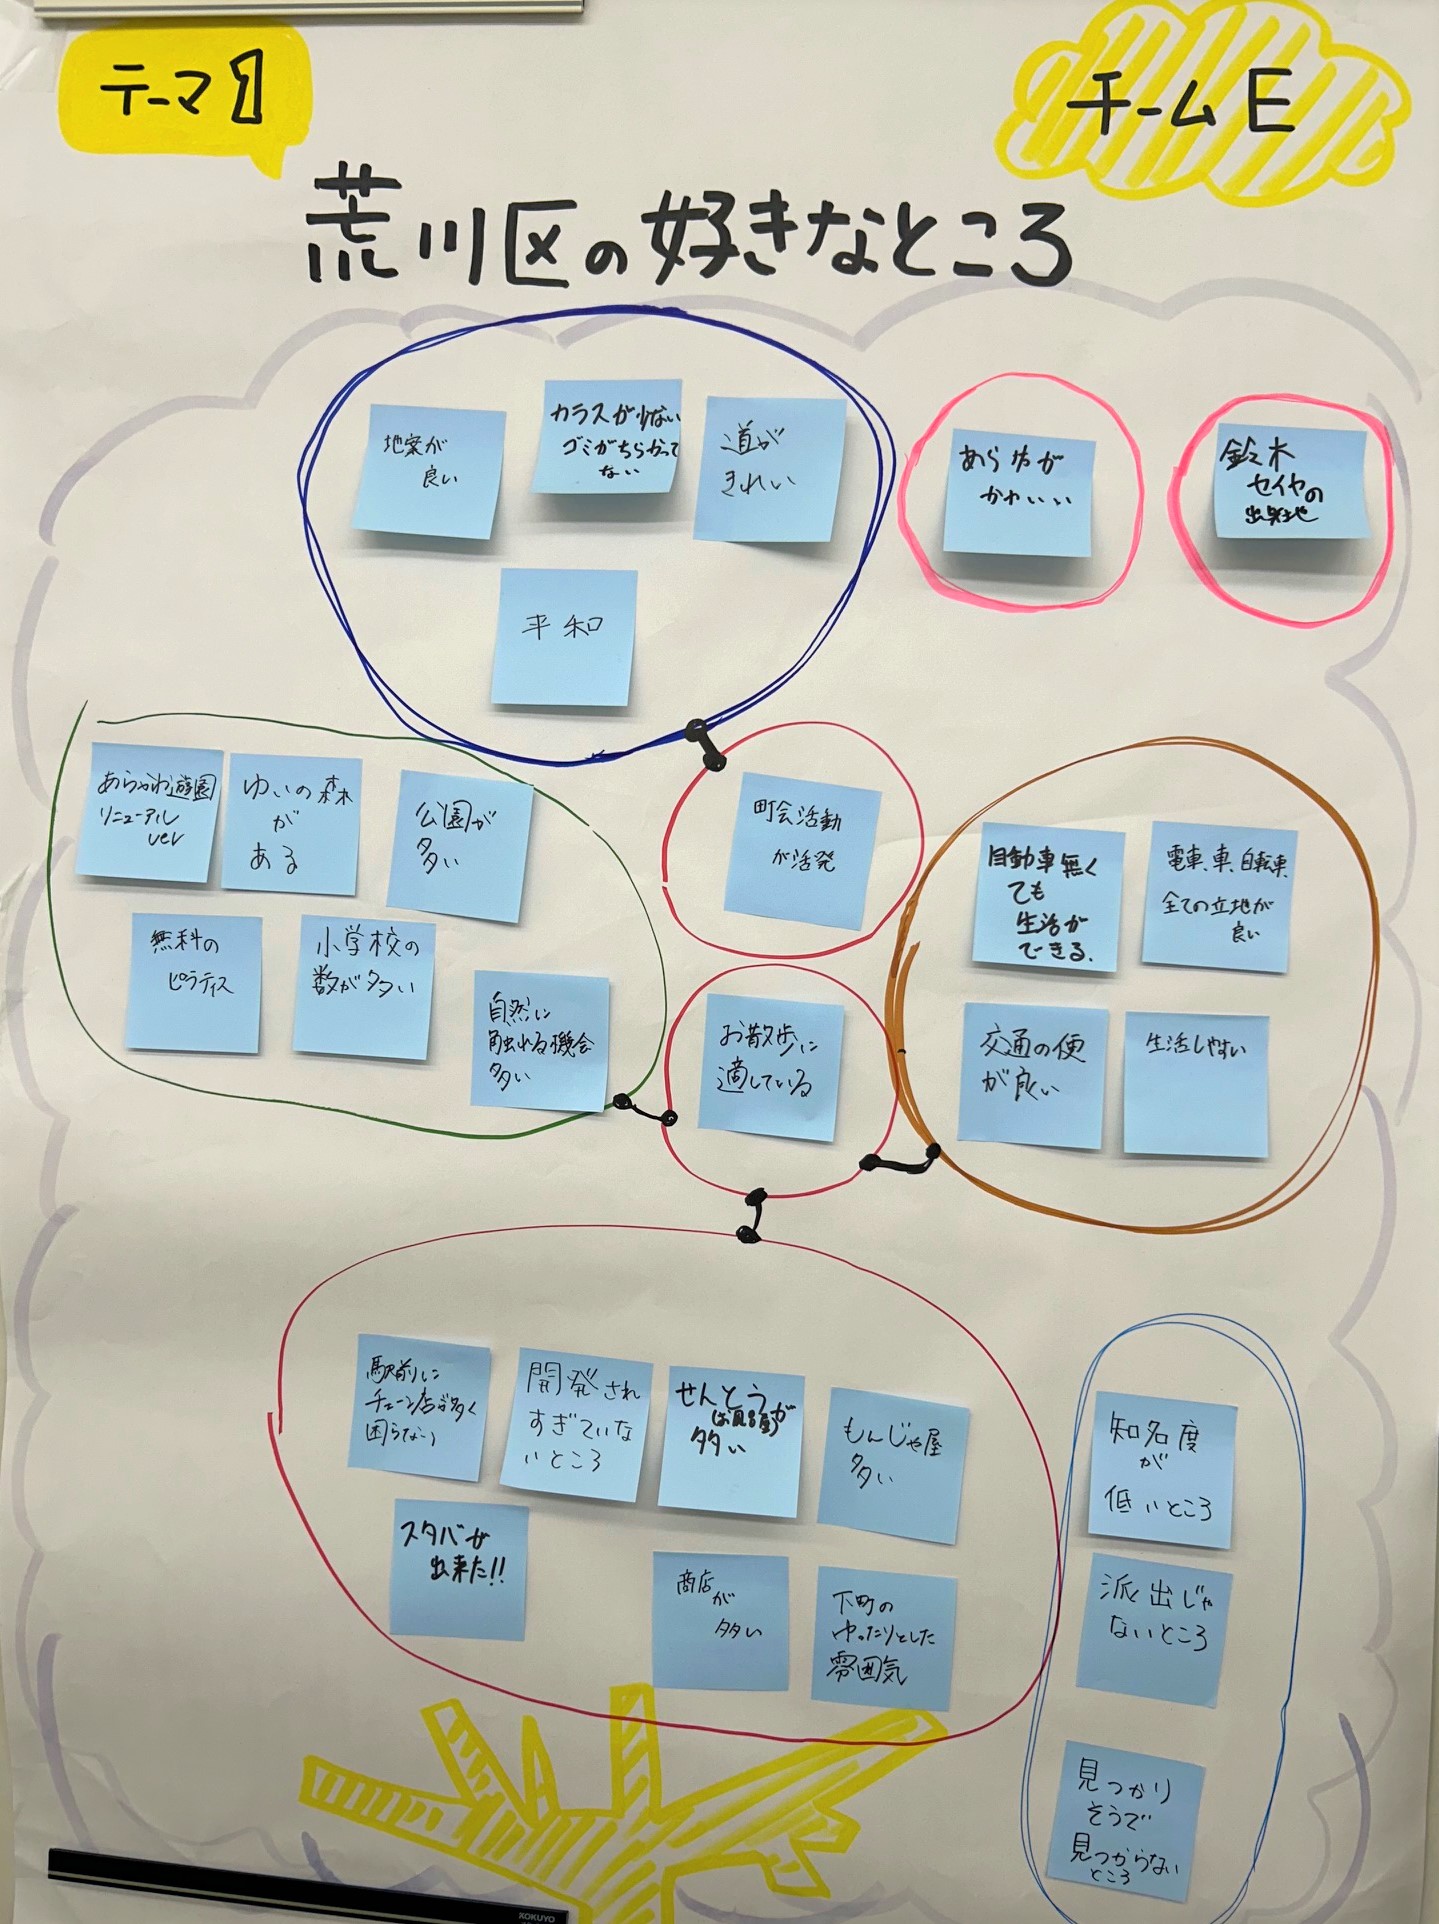 テーマ1
チームE
荒川区の好きなところ
地案が
良い
カラスが少ない
ゴミがちらかって
ない
道が
きれい
平和
あらゆが
かわいい
鈴木
セイヤの
出発地
あらかわ遊園
リニューアル
ver
ゆいの森
が
ある
公園が
多い
無料の
ピラティス
小学校の
数が多い
自然に
触れる機会
多い
町会活動
が活発
お散歩に
適している
自動車無く
ても
生活が
できる.
電車、車、自転車、
全ての立地が
良い
交通の便
が良い
生活しやすい
駅前に
チェーン店が多く
困らない
開発され
すぎていな
いところ
せんとう
(お風呂屋)が
多い
もんじゃ屋
多い
スタバが
出来た!!
商店
が
多い
下町の
ゆったりとした
雰囲気
知名度
が
低いところ
派出じゃ
ないところ
見つかり
そうで
見つからない
ところ
KOKUYO